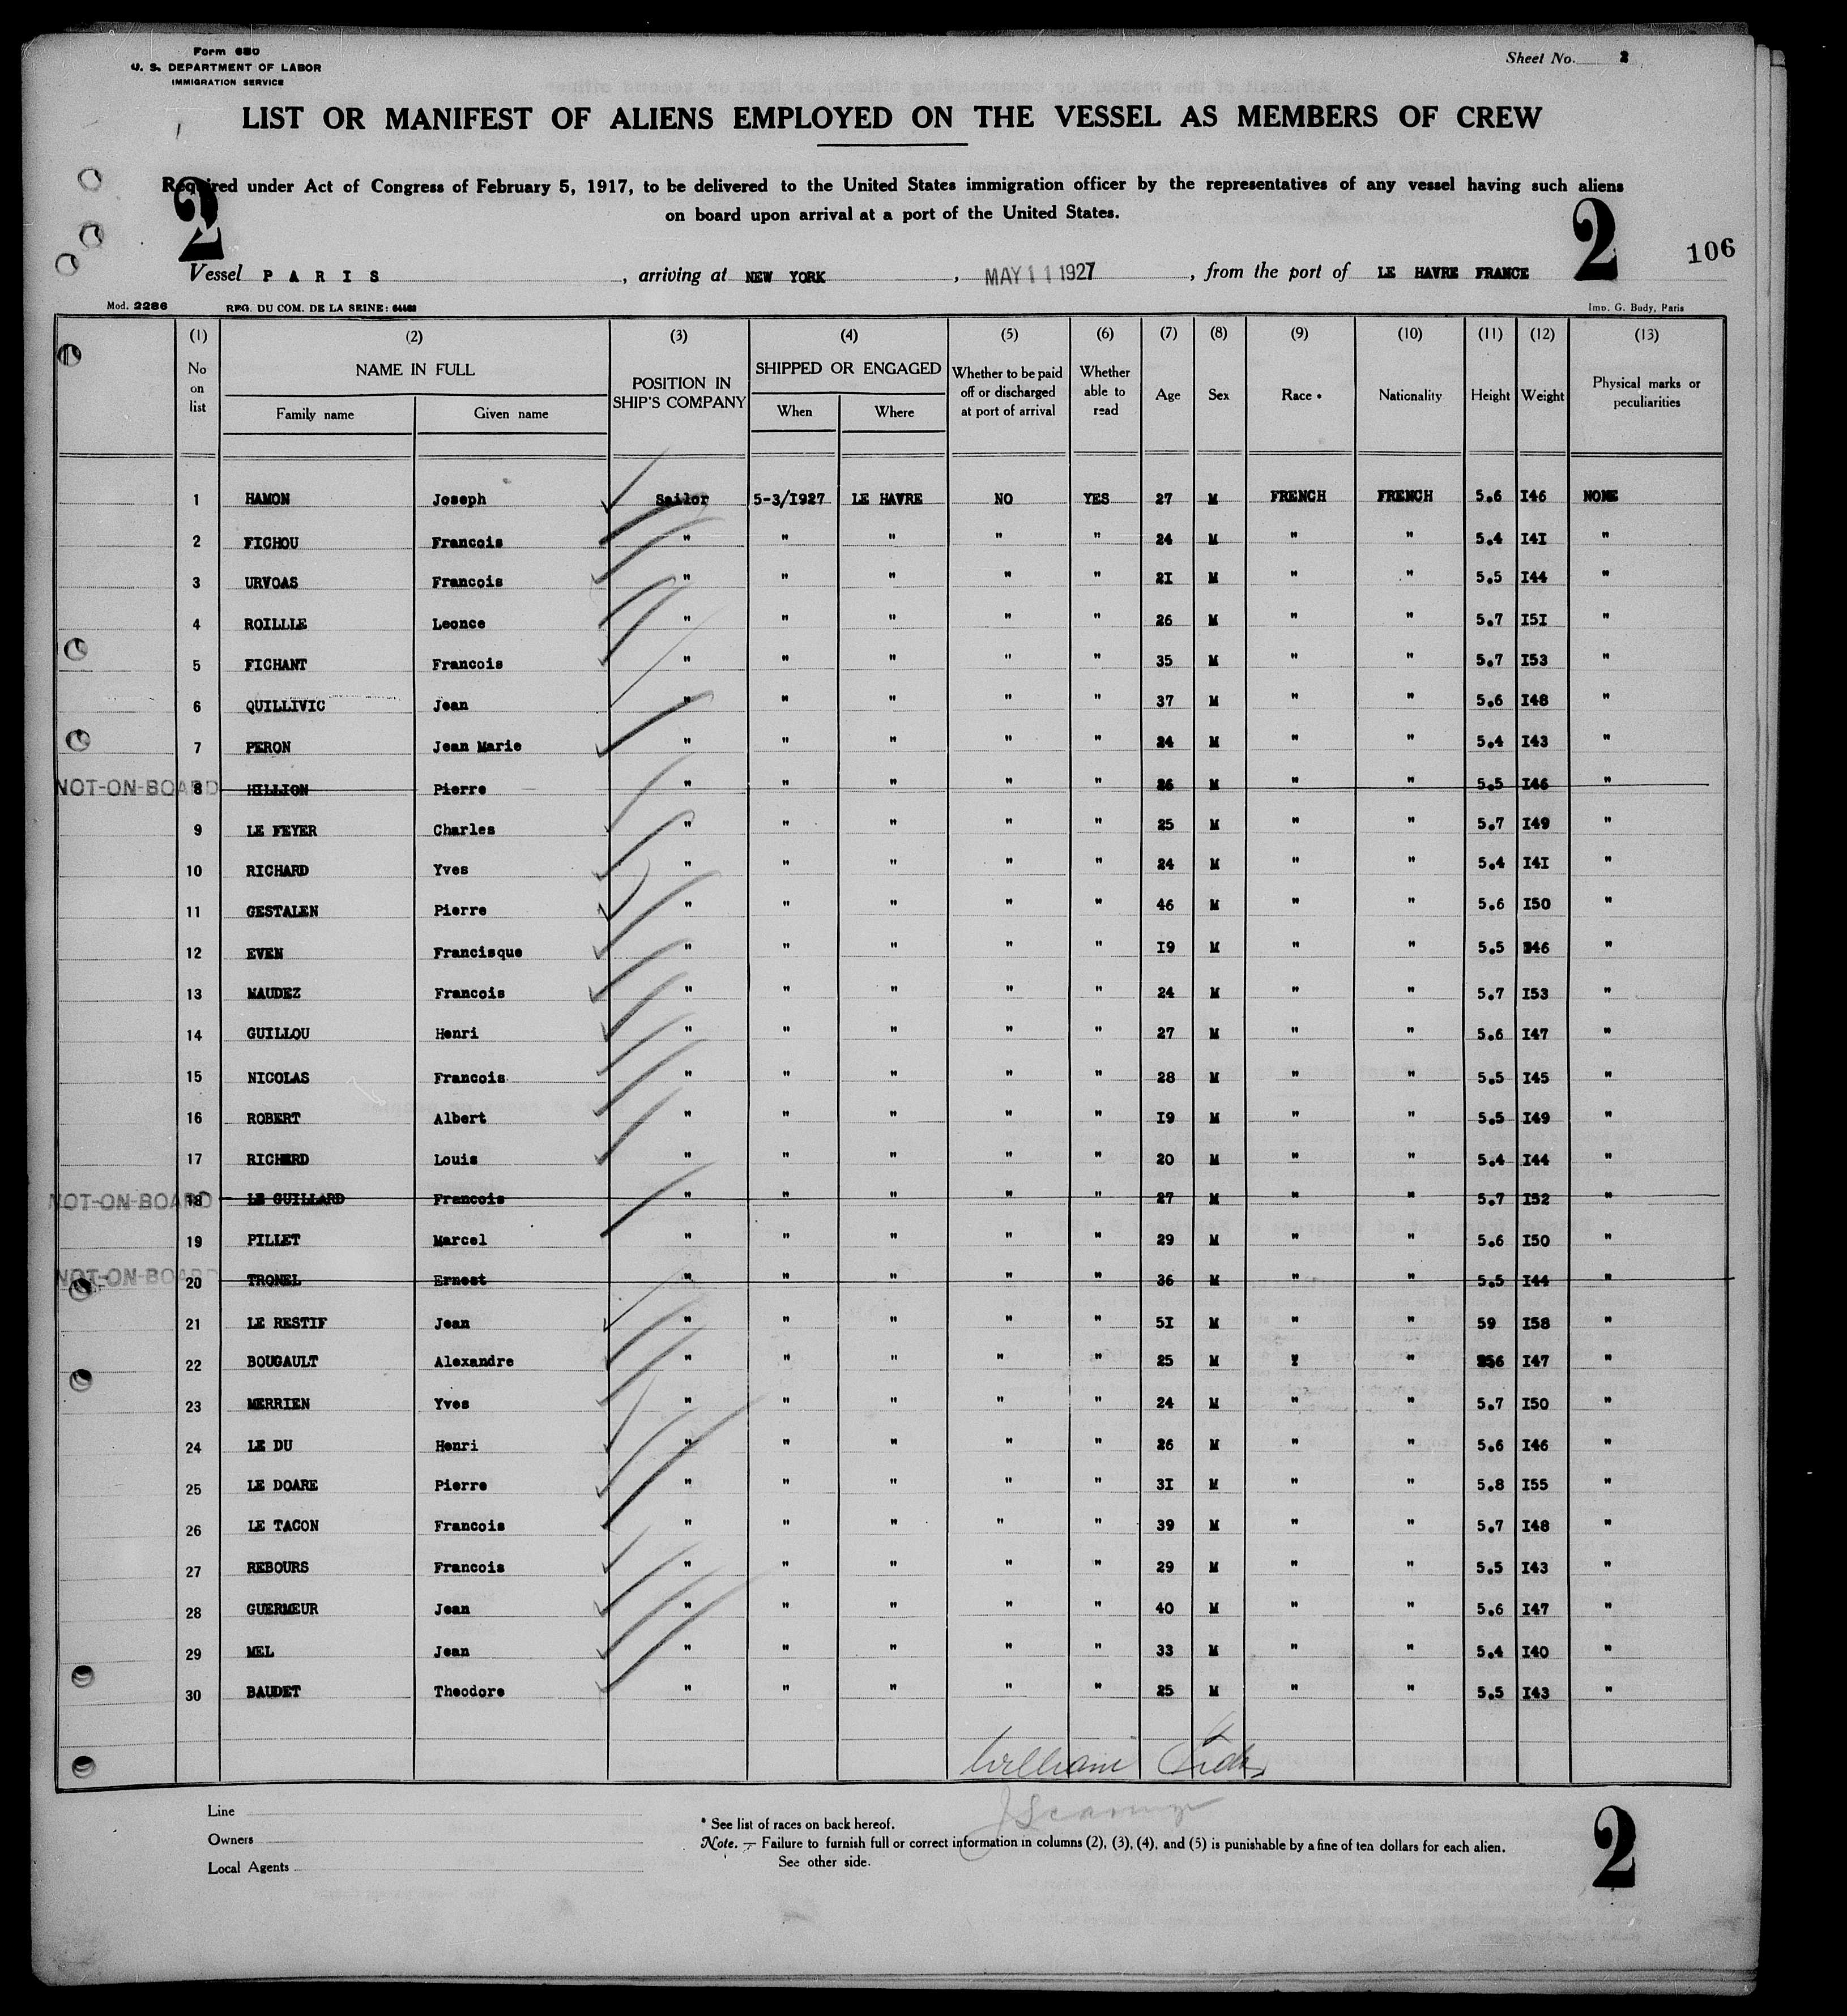 Form 680
U. S. DEPARTMENT OF LABOR
IMMIGRATION SERVICE
Sheet No. 2
LIST OR MANIFEST OF ALIENS EMPLOYED ON THE VESSEL AS MEMBERS OF CREW
Required under Act of Congress of February 5, 1917, to be delivered to the United States immigration officer by the representatives of any vessel having such aliens
on board upon arrival at a port of the United States.
2 2 106
Vessel PARIS, arriving at NEW YORK, MAY 11 1927, from the port of LE HAVRE FRANCE
Mod. 2286 REG. DU COM. DE LA SEINE: Imp. G. Budy, Paris
(1) (2) (3) (4) (5) (6) (7) (8) (9) (10) (11) (12) (13)
No on list NAME IN FULL Family name Given name POSITION IN SHIP'S COMPANY SHIPPED OR ENGAGED When Where Whether to be paid off or discharged at port of arrival Whether able to read Age Sex Race * Nationality Height Weight Physical marks or peculiarities
1 HAMON Joseph Sailor 5-3/I927 LE HAVRE NO YES 27 M FRENCH FRENCH 5.6 I46 NONE
2 FICHOU Francois " " " " " 24 M " " 5.4 I4I "
3 URVOAS Francois " " " " " 2I M " " 5.5 I44 "
4 ROILLIE Leonce " " " " " 26 M " " 5.7 I5I "
5 FICHANT Francois " " " " " 35 M " " 5.7 I53 "
6 QUILLIVIC Jean " " " " " 37 M " " 5.6 I48 "
7 PERON Jean Marie " " " " " 24 M " " 5.4 I43 "
NOT-ON-BOARD 8 HILLION Pierre " " " " " 26 M " " 5.5 I46 "
9 LE FEYER Charles " " " " " 25 M " " 5.7 I49 "
10 RICHARD Yves " " " " " 24 M " " 5.4 I4I "
11 GESTALEN Pierre " " " " " 46 M " " 5.6 I50 "
12 EVEN Francisque " " " " " I9 M " " 5.5 I46 "
13 MAUDEZ Francois " " " " " 24 M " " 5.7 I53 "
14 GUILLOU Henri " " " " " 27 M " " 5.6 I47 "
15 NICOLAS Francois " " " " " 28 M " " 5.5 I45 "
16 ROBERT Albert " " " " " I9 M " " 5.5 I49 "
17 RICHARD Louis " " " " " 20 M " " 5.4 I44 "
NOT-ON-BOARD 18 LE GUILLARD Francois " " " " " 27 M " " 5.7 I52 "
19 PILLET Marcel " " " " " 29 M " " 5.6 I50 "
NOT-ON-BOARD 20 TRONEL Ernest " " " " " 36 M " " 5.5 I44 "
21 LE RESTIF Jean " " " " " 5I M " " 59 I58 "
22 BOUGAULT Alexandre " " " " " 25 M " 56 I47 "
23 MERRIEN Yves " " " " " 24 M " " 5.7 I50 "
24 LE DU Henri " " " " " 26 M " " 5.6 I46 "
25 LE DOARE Pierre " " " " " 3I M " " 5.8 I55 "
26 LE TACON Francois " " " " " 39 M " " 5.7 I48 "
27 REBOURS Francois " " " " " 29 M " " 5.5 I43 "
28 GUERMEUR Jean " " " " " 40 M " " 5.6 I47 "
29 MEL Jean " " " " " 33 M " " 5.4 I40 "
30 BAUDET Theodore " " " " " 25 M " " 5.5 I43 "
William
Line
Owners
Local Agents
* See list of races on back hereof.
Note. — Failure to furnish full or correct information in columns (2), (3), (4), and (5) is punishable by a fine of ten dollars for each alien.
See other side.
2